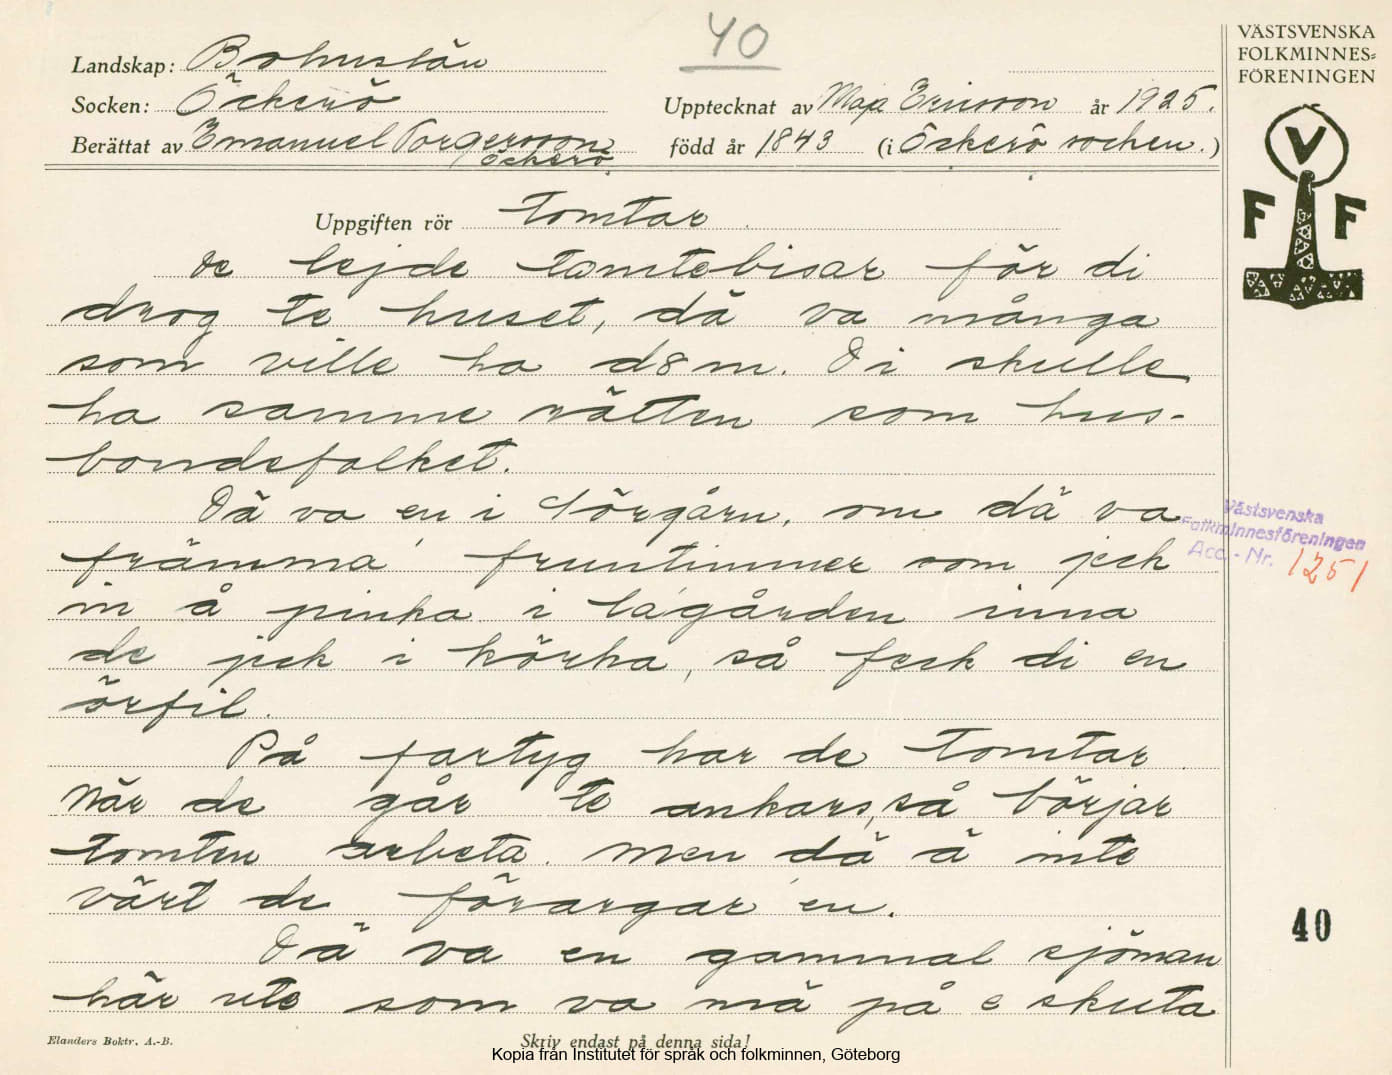 40
Landskap: Bohuslän
Socken: Öckerö
Berättat av Emanuel Torgersson,
Öckerö.
Upptecknat av Maja Ericsson år 1925.
född år 1843 (i Öckerö socken.)
VÄSTSVENSKA
FOLKMINNES=
FÖRENINGEN
V
F F
Uppgiften rör Tomtar
De lejde tomtebisar för di
drog te huset, dä va många
som ville ha døm. Di skulle
ha samme rätten som hus-
bondefolket.
Dä va en i Nörgårn, om dä va
främma fruntimmer som jek
in å pinka i lagården inna
de jek i körka, så feck di en
örfil.
På fartyg har de tomtar
När de går te ankars, så börjar
tomten arbeta. Men dä ä inte
värt de förargar en.
Dä va en gammal sjöman
här ute som va mä på e skuta
Västsvenska
Folkminnesföreningen
Acc.-Nr. 1251
40
Elanders Boktr. A.-B.
Skriv endast på denna sida!
Kopia från Institutet för språk och folkminnen, Göteborg